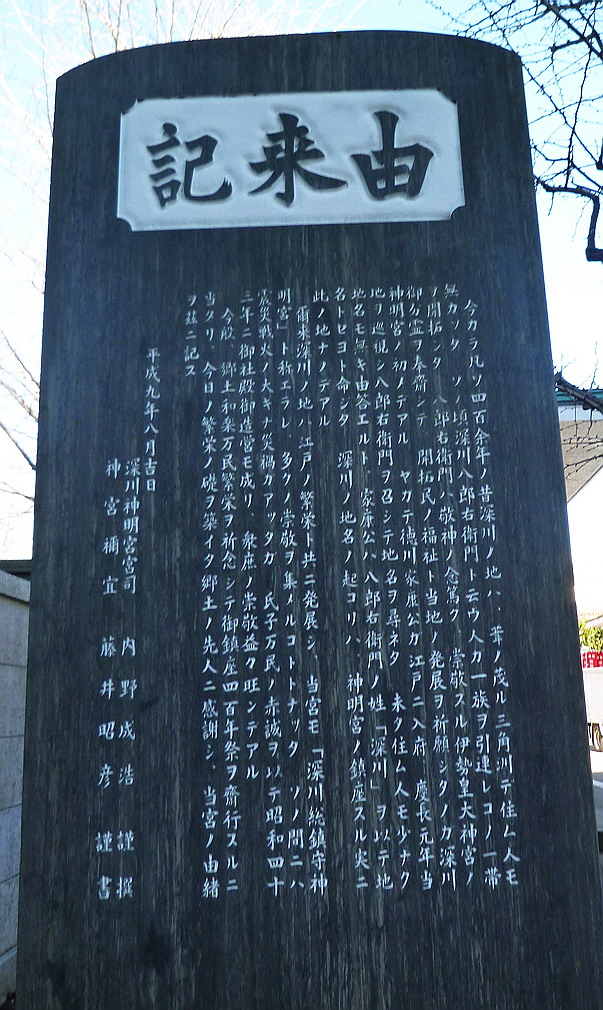 由来記
今カラ凡ソ四百余年ノ昔深川ノ地ハ、葦ノ茂ル三角洲デ住ム人モ
無カッタ ソノ頃深川八郎右衛門ト云ウ人ガ一族ヲ引連レコノ一帯
ヲ開拓シタ 八郎右衛門ハ敬神ノ念篤ク、崇敬スル伊勢皇大神宮ノ
御分霊ヲ奉齋シテ 開拓民ノ福祉ト当地ノ発展ヲ祈願シタノガ深川
神明宮ノ初メデアル ヤガテ徳川家康公ガ江戸ニ入府 慶長元年当
地ヲ巡視シ八郎右衛門ヲ召シテ地名ヲ尋ネタ 未タ住ム人モ少ナク
地名モ無キ由答エルト、家康公ハ八郎右衛門ノ姓「深川」ヲ以テ地
名トセヨト命シタ 深川ノ地名ノ起コリハ、神明宮ノ鎮座スル実ニ
此ノ地ナノデアル
爾来深川ノ地ハ江戸ノ繁栄ト共ニ発展シ、当宮モ「深川総鎮守神
明宮」ト称エラレ、多クノ崇敬ヲ集メルコトトナッタ ソノ間ニハ
震災戦火ノ大キナ災禍ガアッタガ 氏子万民ノ赤誠ヲ以テ昭和四十
三年ニ御社殿御造営モ成リ 衆庶ノ崇敬益々旺ンデアル
今般、郷土和楽万民繁栄ヲ祈念シテ御鎮座四百年祭ヲ齋行スルニ
当タリ、今日ノ繁栄ノ礎ヲ築イタ郷土ノ先人ニ感謝シ、当宮ノ由緒
ヲ茲ニ記ス
平成九年八月吉日
深川神明宮宮司 内野成浩 謹撰
神宮禰宜 藤井昭彦 謹書